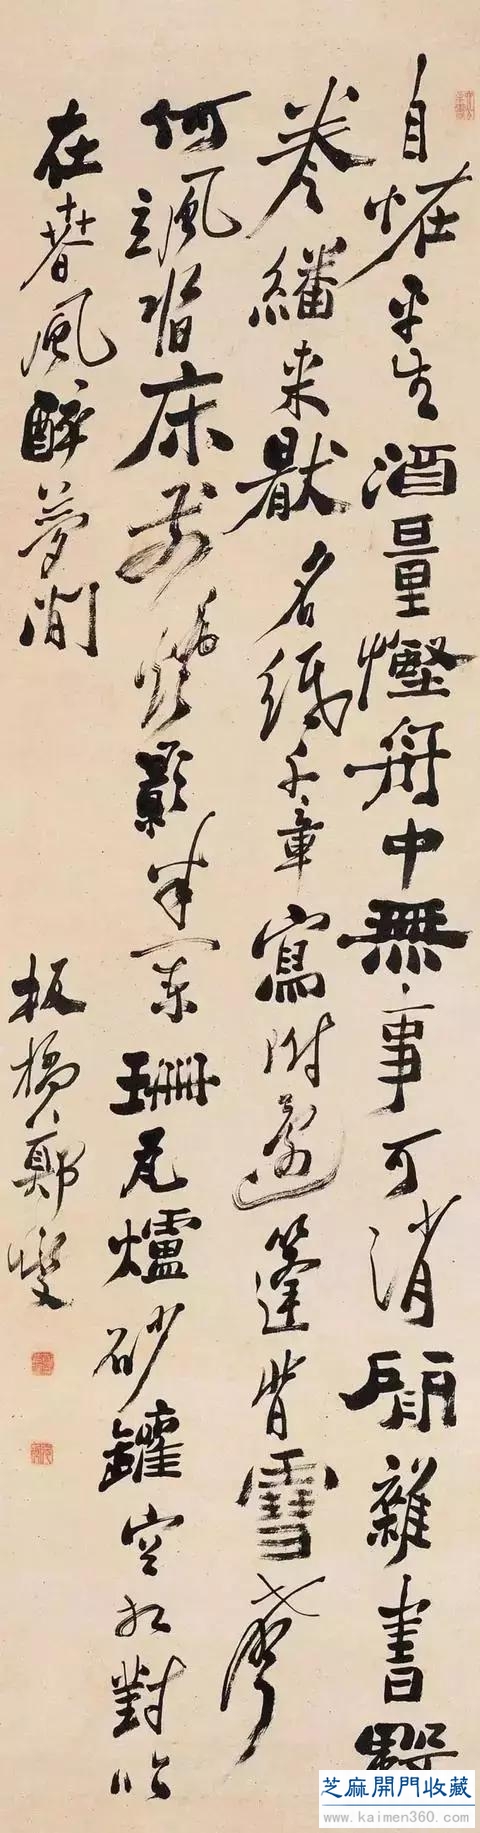 自恠平生酒量慳舟中無事可消閒雜書數
卷繙來猒名紙千章寫附還篷背雪聲
何颯沓床前燈影半闌珊瓦爐砂罐空相對似
在春風醉夢間
板橋鄭燮
芝麻開門收藏
www.kaimen360.com